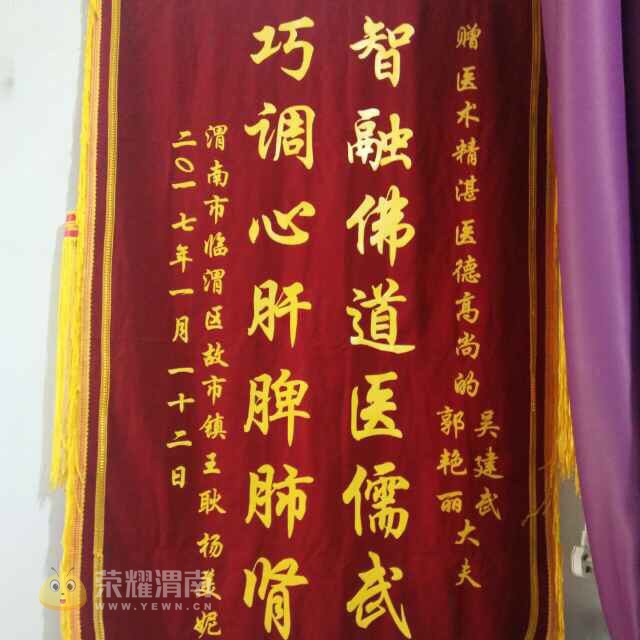 赠医术精湛医德高尚的
吴建武
郭艳丽大夫
智融佛道医儒武
巧调心肝脾肺肾
渭南市临渭区故市镇王耿杨美妮
二〇一七年一月一十二日
荣耀渭南
WWW.YEWN.CN